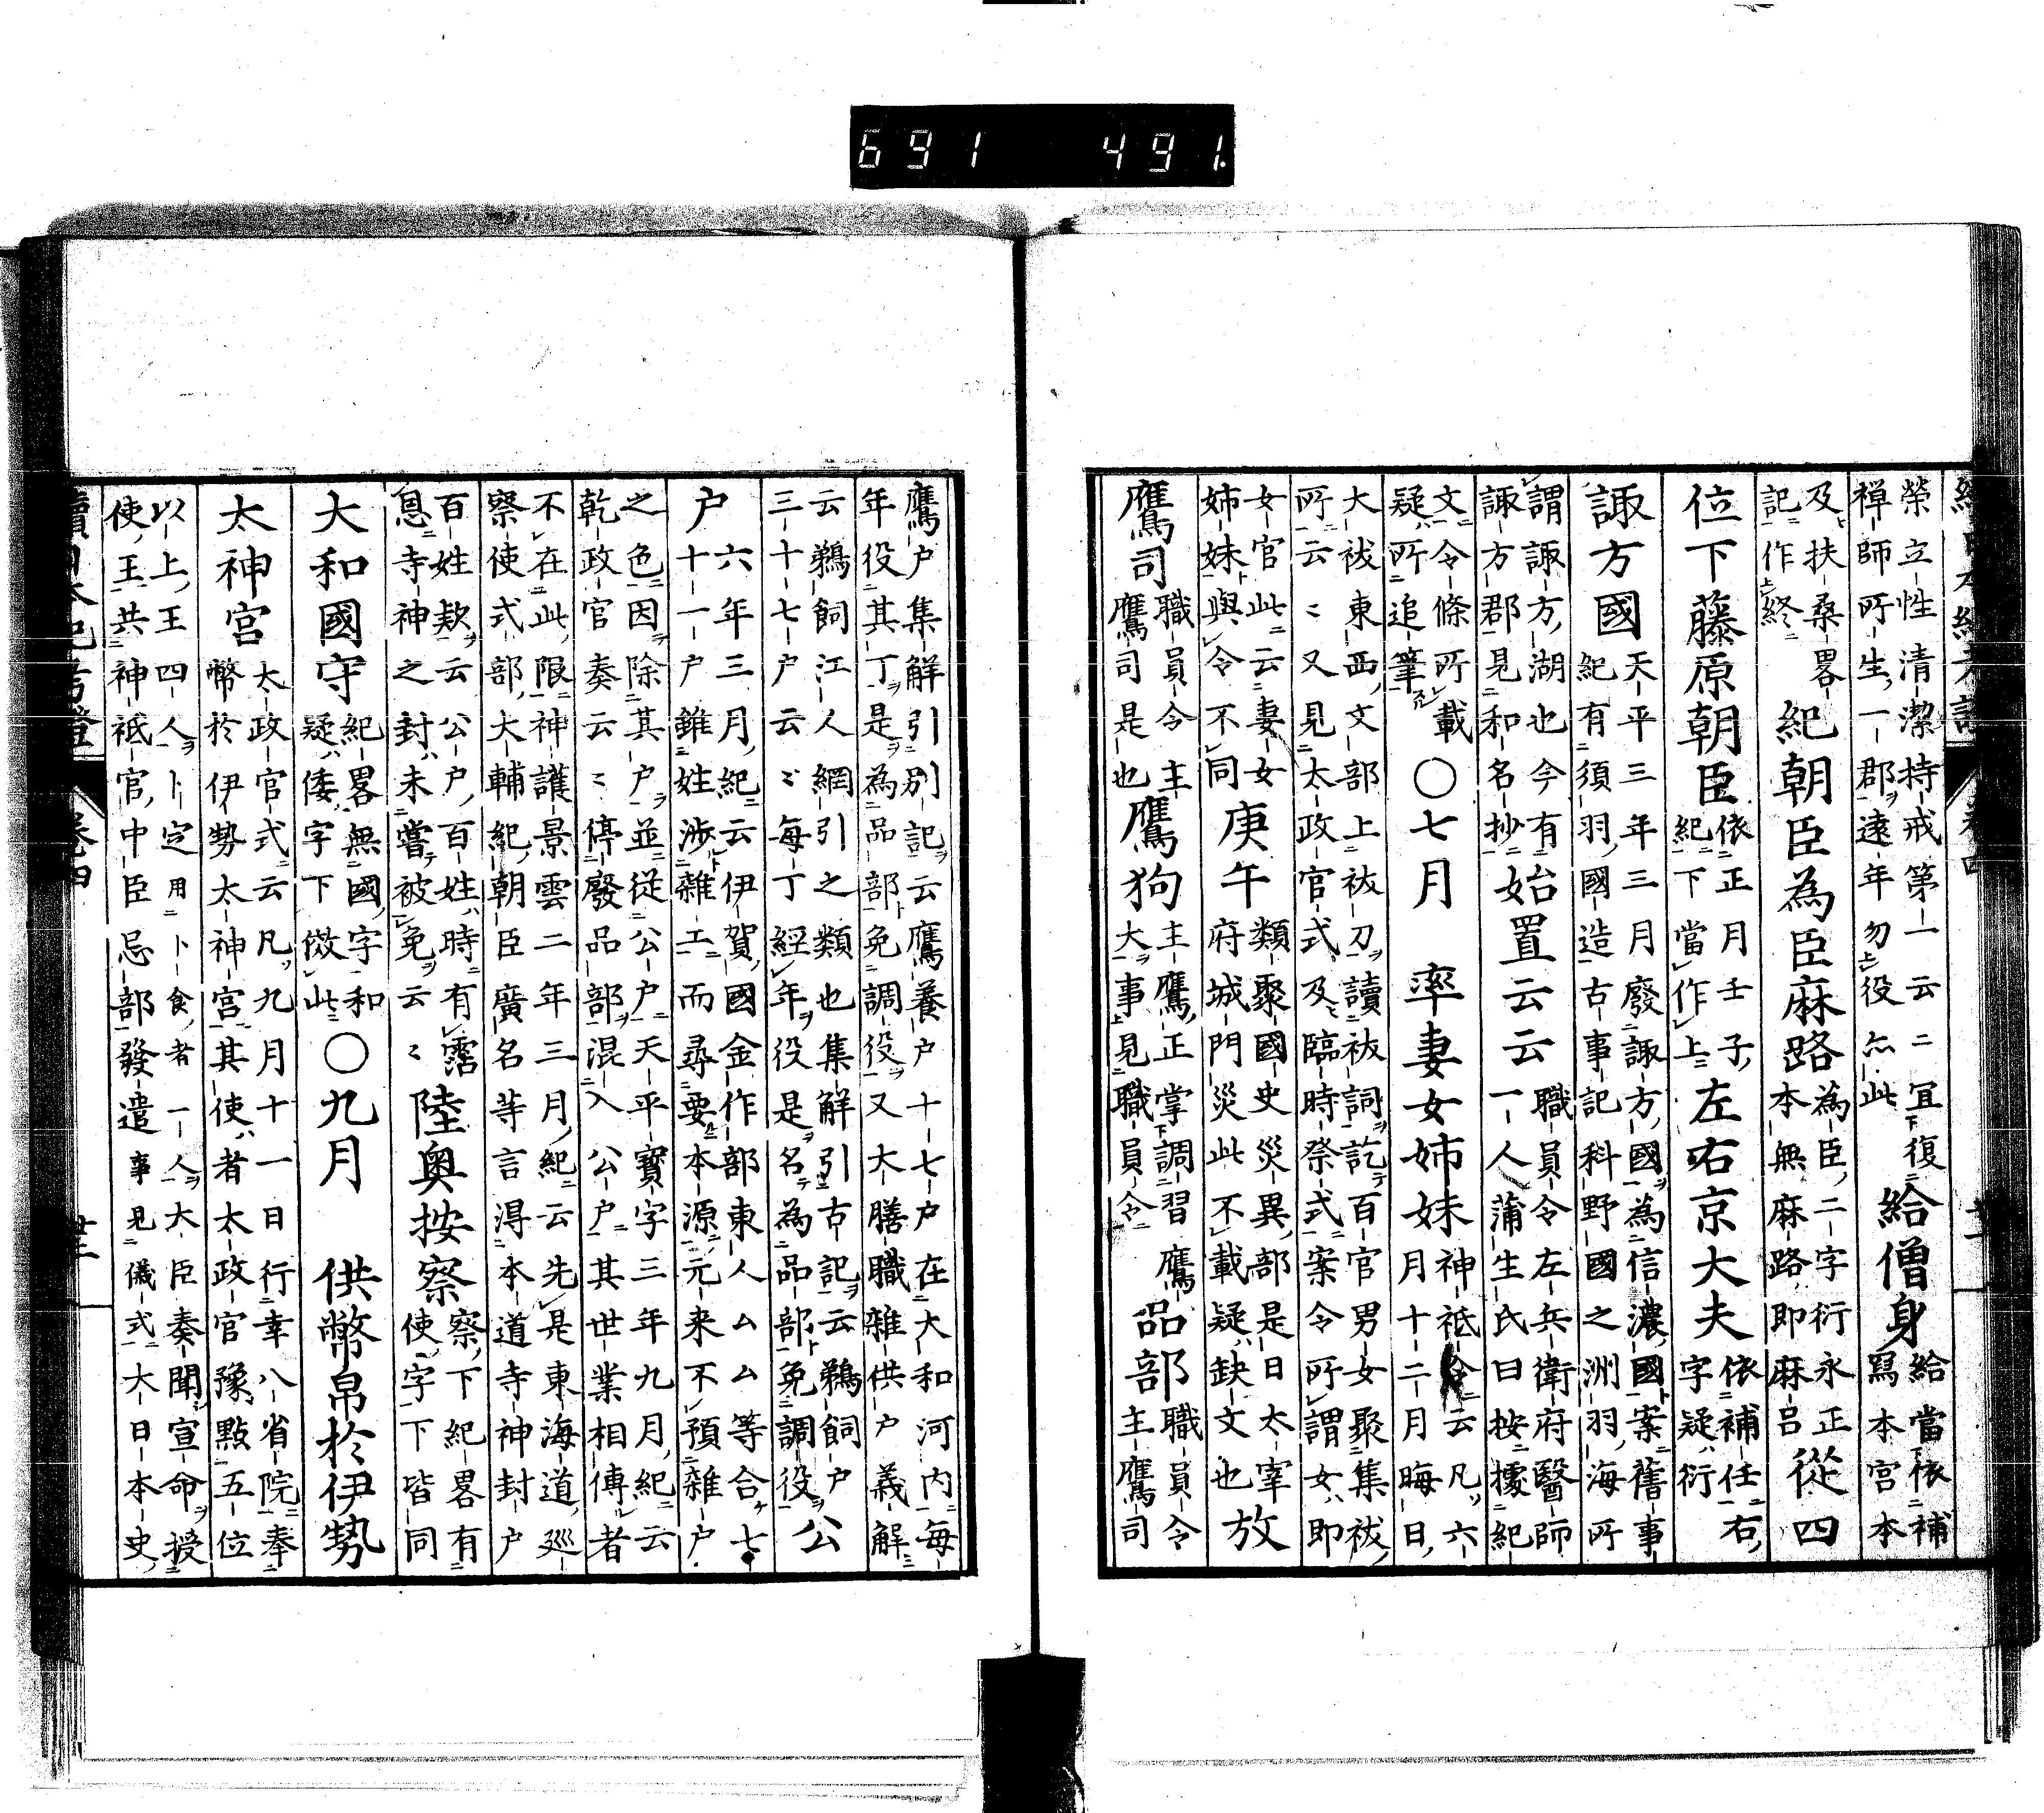 691 491.
榮立性清潔持戒第一云二冝復
禅師所生一郡遠年勿役亦此
給僧身
給當依補
寫本宮本
及扶桑畧
記作終
紀朝臣為臣麻路
為臣二字衍永正
本無麻路即麻呂
從四
位下藤原朝臣
依正月壬子
紀下當作上
左右京大夫
依補任右
字疑衍
諏方國
天平三年三月廢諏方國為信濃國案舊事
紀有須羽國造古事記科野國之洲羽海所
謂諏方湖也今有
諏方郡見和名抄
始置云云
職員令左兵衛府醫師
一人蒲生氏曰按據紀
文令條所載
疑所追筆
〇七月
率妻女姉妹
神祇令云凡六
月十二月晦日
大祓東西文部上祓刀讀祓詞訖百官男女聚集祓
所云〻又見太政官式及臨時祭式案令所謂女即
女官此云妻女
姉妹與令不同
庚午
類聚國史災異部是日太宰
府城門災此不載疑缺文也
放
鷹司
職員令主
鷹司是也
鷹狗
主鷹正掌調習鷹
犬事見職員令
品部
職員令
主鷹司
鷹戸集解引別記云鷹養戸十七戸在大和河内每
年役其丁是為品部免調役又大膳職雜供戸義解
云鵜飼江人網引之類也集解引古記云鵜飼戸
三十七戸云〻每丁經年役是名為品部免調役
公
戸
六年三月紀云伊賀國金作部東人厶厶等合七
十一戸雖姓渉雜工而尋要本源元来不預雜戸
之色因除其戸並從公戸天平寶字三年九月紀云
乾政官奏云〻停廢品部混入公戸其世業相傳者
不在此限神護景雲二年三月紀云先是東海道廵
察使式部大輔紀朝臣廣名等言得本道寺神封戸
百姓欵云公戸百姓時有霑
恩寺神之封未嘗被免云〻
陸奥按察
察下紀畧有
使字下皆同
大和國守
紀畧無國字和
疑倭字下倣此
〇九月
供幣帛於伊勢
太神宮
太政官式云凡九月十一日行幸八省院奉
幣於伊勢太神宮其使者太政官豫點五位
以上王四人卜定用卜食者一人大臣奏聞宣命授
使王共神祇官中臣忌部發遣事見儀式大日本史
卷四